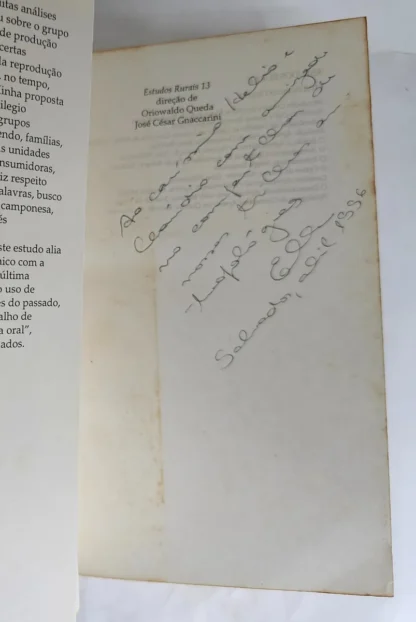 uitas análises
u sobre o grupo
de produção
certas
la reprodução
, no tempo,
tinha proposta
ilegio
grupos
endo, famílias,
s unidades
nsumidoras,
iz respeito
alavras, busco
camponesa,
és
ste estudo alia
nico com a
última
o uso de
es do passado,
alho de
a oral",
ados.
Estudos Rurais 13
direção de
Oriowaldo Queda
José César Gnaccarini
Ao
Claudio com
no compartilhar de
nossas trilhas
Salvador, abril 1996